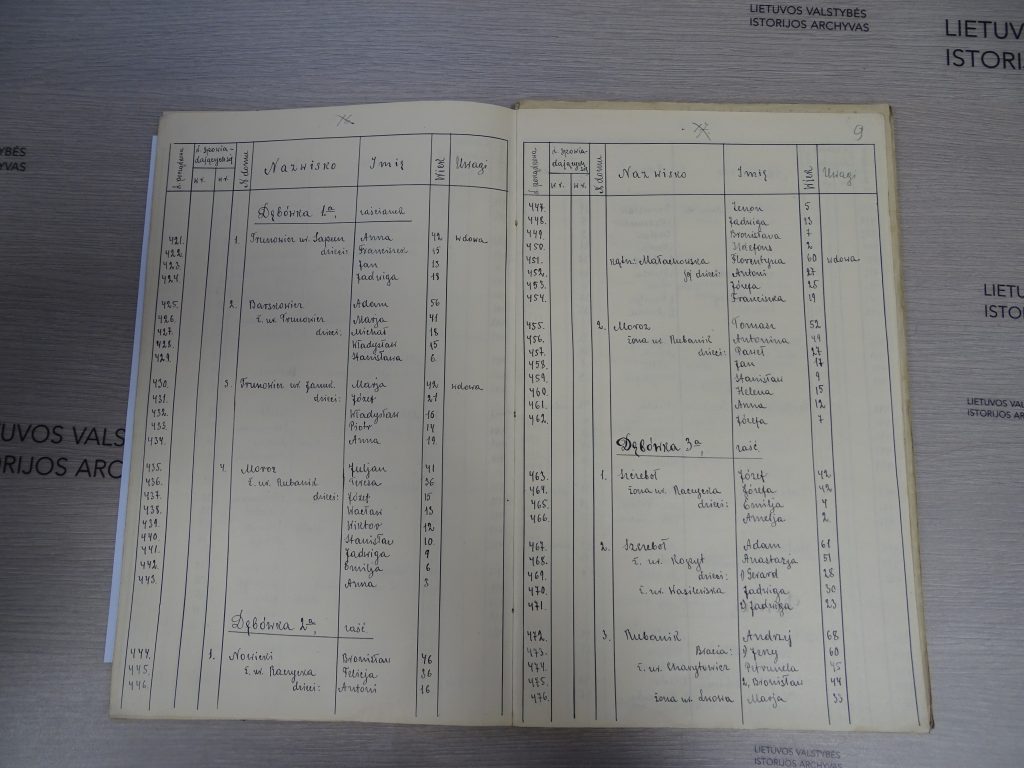 LIETUVOS VALSTYBĖS
ISTORIJOS ARCHYVAS
LIETUV
ISTORI
YBĖS
YVAS
LIETU
ISTO
LIETUVOS VAL
ISTORIJOS AR
UVOS VALS
ORIJOS ARC
LIETUVOS VALSTYBĖS
ISTORIJOS ARCHYVAS
L. porządkowa L. spowiadających N domu Nazwisko Imię Wiek Uwagi
Dębówka 1a, zaścianek
421. 1. Anna 42 wdowa
422. dzieci: Franciszek 15
423. Jan 13
424. Jadwiga 18
425. 2. Adam 56
426. Marja 41
427. dzieci: Michał 18
428. Władysław 15
429. Stanisława 6
430. 3. Marja 42 wdowa
431. dzieci: Józef 21
432. Władysław 16
433. Piotr 14
434. Anna 19
435. 4. Moroz Juljan 41
436. ż. ur. Rubanik Teresa 36
437. dzieci: Józef 15
438. Wacław 13
439. Wiktor 12
440. Stanisław 10.
441. Jadwiga 9
442. Emilja 6
443. Anna 3.
Dębówka 2a, zaść
444. 1. Nowicki Bronisław 46
445. ż. ur. Raczycka Felicja 36
446. dzieci: Antoni 16
9
L. porządkowa L. spowiadających N domu Nazwisko Imię Wiek Uwagi
447. Zenon 5
448. Jadwiga 13
449. Bronisława 7
450. Ildefons 2
451. kątn: Małachowska Florentyna 60 wdowa
452. jej dzieci: Antoni 27
453. Józefa 25
454. Franciszka 19
455. 2. Moroz Tomasz 52
456. żona ur. Rubanik Antonina 49
457. dzieci: Paweł 27
458. Jan 17
459. Stanisław 9
460. Helena 15
461. Anna 12
462. Józefa 7
Dębówka 3a, zaść.
463. 1. Szereboł Józef 42
464. żona ur. Raczycka Józefa 42
465. dzieci: Emilja 4
466. Amelja 2
467. 2. Szereboł Adam 61
468. ż. ur. Anastazja 51
469. dzieci: 1) Gerard 28
470. ż. ur. Wasilewska Jadwiga 30
471. 2) Jadwiga 23
472. 3. Rubanik Andrzej 68
473. Bracia: 1) Jerzy 60
474. ż. ur. Charytowicz Petrunela 45
475. 2, Bronisław 44
476. żona ur. Marja 33